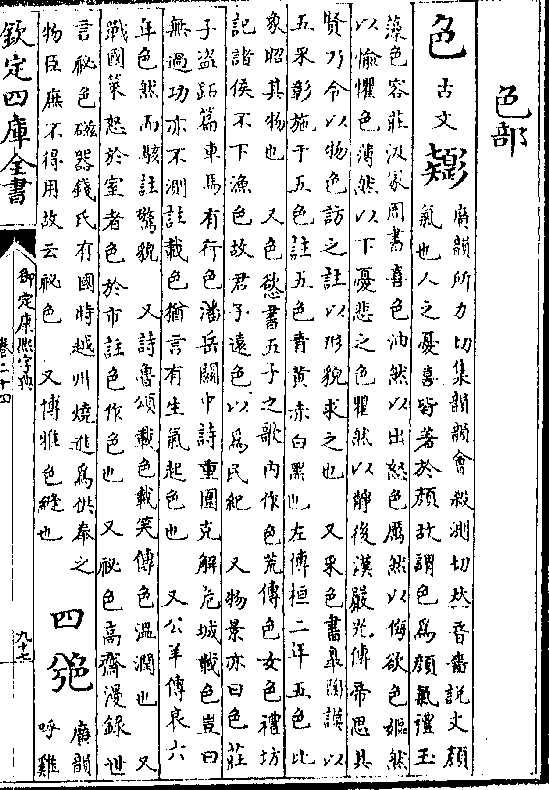 色部
色 古文 𩒹 廣韻所力切集韻韻會殺測切𠀤音嗇說文顏
氣也人之憂喜皆著於顏故謂色爲顏氣禮玉
藻色容莊汲冢周書喜色油然以出怒色厲然以侮欲色嫗然
以愉懼色薄然以下憂悲之色瞿然以靜後漢嚴光傳帝思其
賢乃令以物色訪之註以形貌求之也 又采色書臯陶謨以
五采彰施于五色註五色青黃赤白黑也左傳桓二年五色比
象昭其物也 又色慾書五子之歌內作色荒傳色女色禮坊
記諸侯不下漁色故君子遠色以爲民紀 又物景亦曰色莊
子盜跖篇車馬有行色潘岳關中詩重圍克解危城載色豈曰
無過功亦不測註載色猶言有生氣起色也 又公羊傳哀六
年色然而駭註驚貌 又詩魯頌載色載笑傳色溫潤也 又
戰國策怒於室者色於市註色作色也 又祕色高齋漫錄世
言祕色磁器錢氏有國時越州燒進爲供奉之
物臣庶不得用故云祕色 又博雅色縫也
四 𦫖 廣韻
呼雞
欽定四庫全書
御定康熙字典
卷二十四
九十七